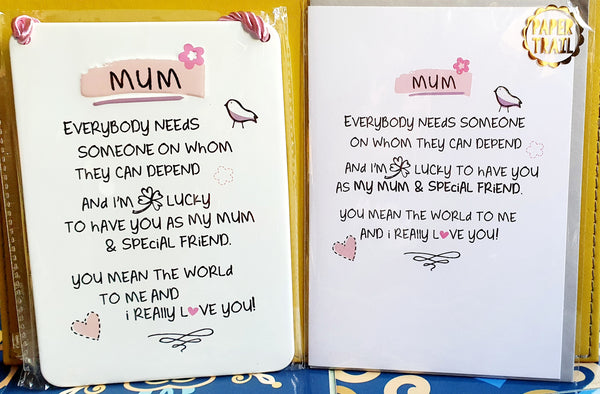 MUM
EVERYBODY NEEDS
SOMEONE ON WHOM
THEY CAN DEPEND
AND I'M LUCKY
TO HAVE YOU AS MY MUM
& SPECIAL FRIEND.
YOU MEAN THE WORLD
TO ME AND
i REAlly LOVE YOU!
PAPER
TRAIL
MUM
EVERYBODY NEEDS SOMEONE
ON WHOM THEY CAN DEPEND
AND I'M LUCKY TO HAVE YOU
AS MY MUM & SPECIAL FRIEND.
YOU MEAN THE WORLD TO ME
AND i REAlly LOVE YOU!